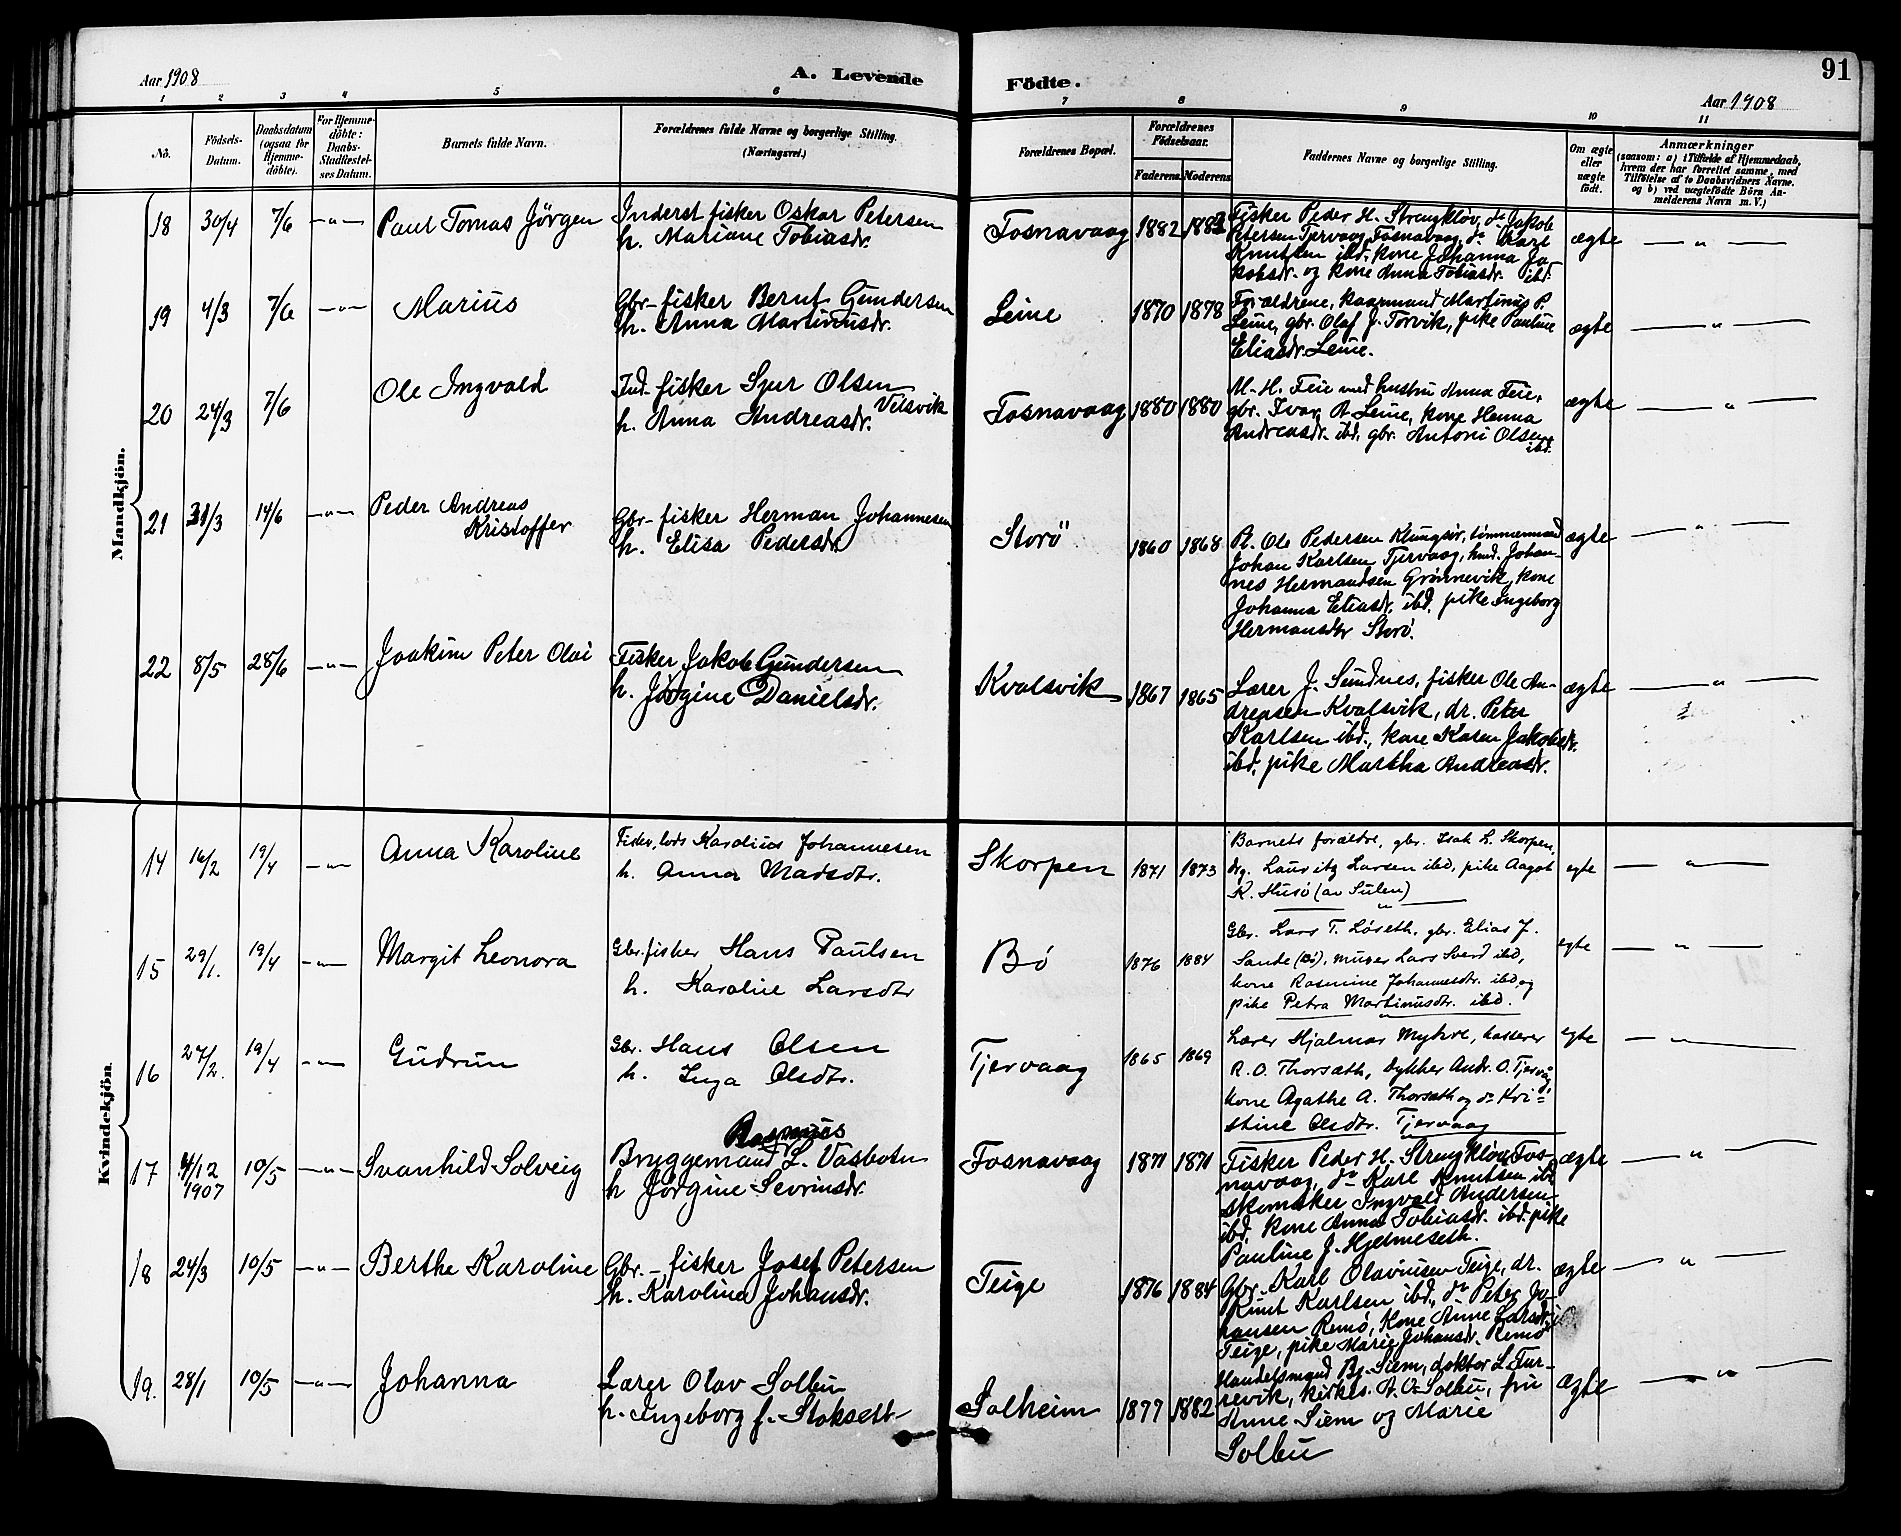 91
Aar 1908
A. Levende
Födte.
Aar 1908
1 2 3 4 5 6 7 8 9 10 11
No.
Födsels-Datum.
Daabsdatum (ogsaa for Hjemme-döbte).
For Hjemme-döbte: Daabs-Stadfæstel-ses Datum.
Barnets fulde Navn.
Forældrenes fulde Navne og borgerlige Stilling.
(Næringsvei.)
Forældrenes Bopæl.
Forældrenes Födselsaar.
Faderens. Moderens.
Faddernes Navne og borgerlige Stilling.
Om ægte eller uægte födt.
Anmærkninger
(saasom: a) i Tilfælde af Hjemmedaab, hvem der har forrettet samme, med Tilföielse af to Daabsvidners Navne. og b) ved uægtefödte Börn An-melderens Navn m. V.)
Mandkjön.
18 30/4 7/6 —"— Paul Tomas Jörgen
Inderst fisker Oskar Petersen
h. Mariane Tobiasdr.
Fosnavaag 1882 1882
Fisker Peder H. Strengkløv, do Jakob
Petersen Tjervaag, Fosnavaag, do Karl
Knutsen ibd. kone Johanna Ja-
kobsdr. og kone Anna Tobiasdr. ibd.
ægte — " —
19 4/3 7/6 —"— Marius
Gbr.- fisker Bernt Gundersen
h. Anna Martinusdr.
Leine 1870 1878
Forældrene, kaarmand Martinus P.
Leine, gbr. Olaf J. Torvik, pike Pauline
Eliasdr. Leine.
ægte — " —
20 24/3 7/6 Ole Ingvald
Ind. fisker Sjur Olsen
Velsvik
h. Anna Andreasdr.
Fosnavaag 1880 1880
M. H. Feie med hustru Anna Feie,
gbr. Ivar A. Leine, kone Hanna
Andreasdr. ibd, gbr. Antoni Olsen
ibd.
ægte — " —
21 31/3 14/6 —"— Peder Andreas
Kristoffer
Gbr.- fisker Herman Johannesen
h. Elisa Pedersdr.
Storö 1860 1868
P. Ole Pedersen Klungsör, tömmermand
Johan Karlsen Tjervaag, hmd. Johan-
nes Hermandsen Grönnevik, kone
Johanna Eliasdr. ibd, pike Ingeborg
Hermansdtr Storö.
ægte — " —
22 8/5 28/6 —"— Joakim Peter Olai
Fisker Jakob Gundersen
h. Jörgine Danielsdr.
Kvalsvik 1867 1865
Lærer J. Sundnes, fisker Ole An-
dreasen Kvalsvik, dr. Peter
Karlsen ibd., kone Karen Jakobsdr.
ibd, pike Martha Andreasdr.
ægte — " —
Kvindekjön.
14 16/2 19/4 —"— Anna Karoline
Fisker, lods Karolius Johannesen
h. Anna Madsdtr.
Skorpen 1871 1873
Barnets forældre, gbr. Isak L. Skorpen,
drg. Lauritz Larsen ibd, pike Aagot
K. Husö (av Sulen)
egte — " —
15 29/1. 19/4 —"— Margit Leonora
Gbr. fisker Hans Paulsen
h. Karoline Larsdtr
Bö 1876 1884
Gbr. Lars T. Löseth, gbr. Elias J.
Sande (Bö), murer Lars Sverd ibd,
kone Rasmine Johannesdtr. ibd, og
pike Petra Martinusdtr. ibd.
egte — " —
16 27/2. 19/4 —"— Gudrun
Gbr. Hans Olsen
h. Inga Olsdtr.
Tjervaag 1865 1869
Lærer Hjalmar Myhre, kasserer
R. O. Thorsæth, dykker Andr. O. Tjervåg,
kone Agathe A. Thorsæth og do Kri-
stine Olsdtr. Tjervaag
egte — " —
17 4/12 1907 10/5 —"— Svanhild Solveig
Rasmus
Bryggemand L. Vasbotn
h Jörgine Sevrinsdr.
Fosnavaag 1871 1871
Fisker Peder H. Strengkløv, Fos-
navaag, do Karl Knutsen ibd
skomaker Ingvald Andersen
ibd, kone Anna Tobiasdr. ibd. pike
Pauline J. Hjelmeseth.
ægte — " —
18 24/3 10/5 —"— Berthe Karoline
Gbr. - fisker Josef Petersen
h. Karoline Johansdr.
Teige 1876 1884
Gbr. Karl Olavnisen Teige, dr.
Knut Karlsen ibd., do Peter Jo-
hansen Remö, kone Anne Larsdr.
Teige, pike Marie Johansdr. Remö
ægte — " —
19. 28/1 10/5 —"— Johanna
Lærer Olav Solbu
h. Ingeborg f. Stokseth
Solheim 1877 1882
Handelsmand Bj. Siem, doktor L. Fur-
revik, kirkes. A. O. Solbu, fru
Anne Siem og Marie
Solbu
ægte — " —